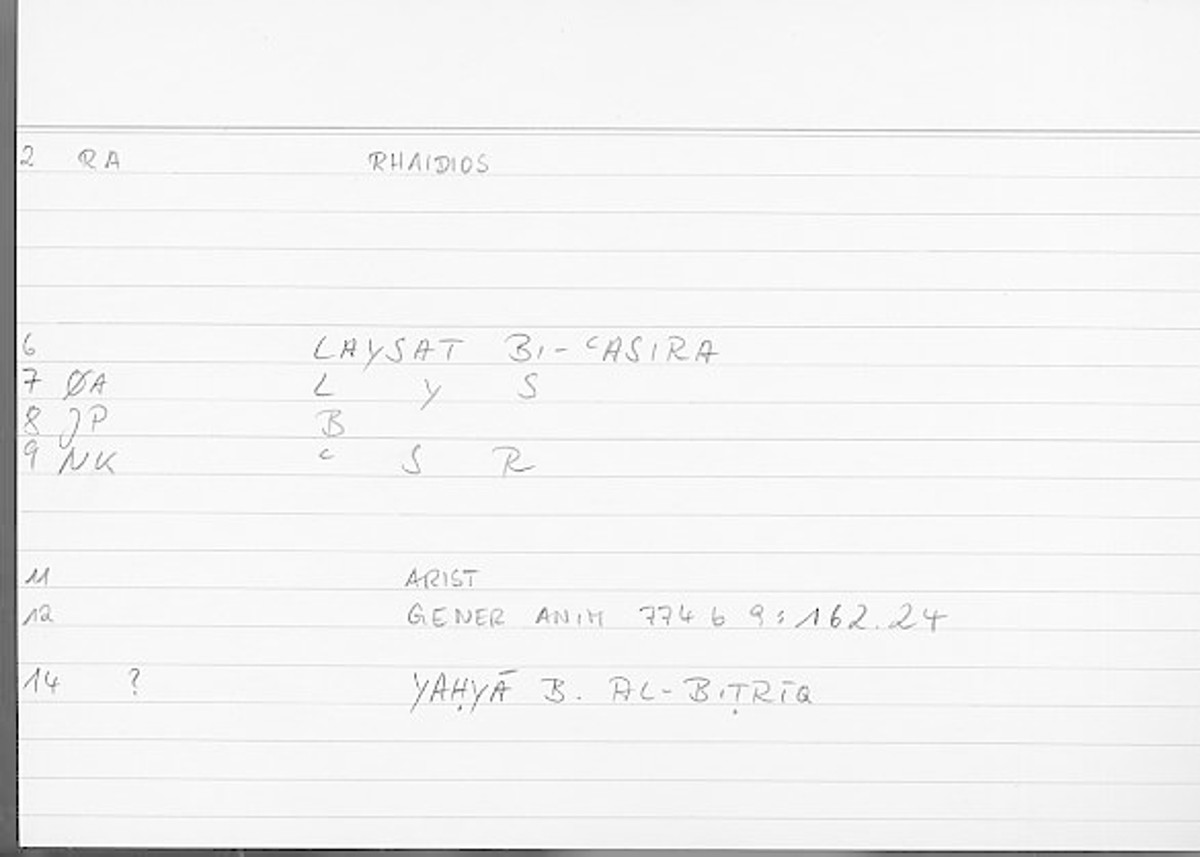 2 RA RHAIDIOS
6 LAYSAT BI-ʿASIRA
7 ØA L Y S
8 JP B
9 NK ʿ S R
11 ARIST
12 GENER ANIM 774 b 9 : 162.24
14 ? YAḤYĀ B. AL-BIṬRĪQ